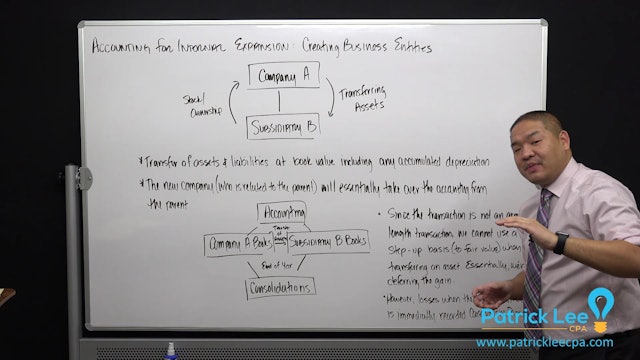 ACCOUNTING FOR INTERNAL EXPANSION: CREATING BUSINESS ENTITIES
COMPANY A
STOCK/
OWNERSHIP
TRANSFERRING
ASSETS
SUBSIDIARY B
* TRANSFER OF ASSETS & LIABILITIES AT BOOK VALUE INCLUDING ANY ACCUMULATED DEPRECIATION
* THE NEW COMPANY (WHO IS RELATED TO THE PARENT) WILL ESSENTIALLY TAKE OVER THE ACCOUNTING FROM
THE PARENT
ACCOUNTING
COMPANY A BOOKS
SUBSIDIARY B BOOKS
END OF YEAR
CONSOLIDATIONS
• SINCE THE TRANSACTION IS NOT AN
LENGTH TRANSACTION, WE CANNOT USE A
STEP-UP BASIS (TO FAIR VALUE) WHEN
TRANSFERRING AN ASSET. ESSENTIALLY, WE'RE
DEFERRING THE GAIN.
• HOWEVER, LOSSES WHEN
IS IMMEDIATELY RECORDED
Patrick Lee
CPA
www.patrickleecpa.com